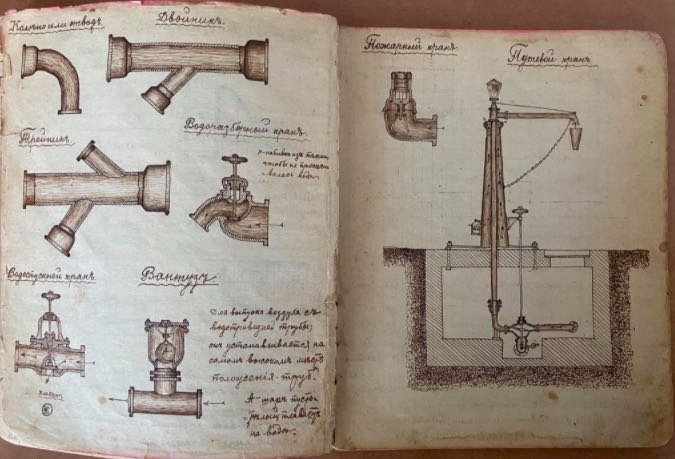 Колѣно или отводъ.
Двойникъ.
Тройникъ.
Водоразборный кранъ.
чтобы не
Водоспускной кранъ.
Вантузъ
Для выпуска воздуха съ
водопроводной трубы;
онъ устанавливается на
самомъ высокомъ мѣстѣ
трубъ.
А - шаръ пусто-
-тѣлый плаваетъ
на водѣ.
Пожарный кранъ.
Путевой кранъ.